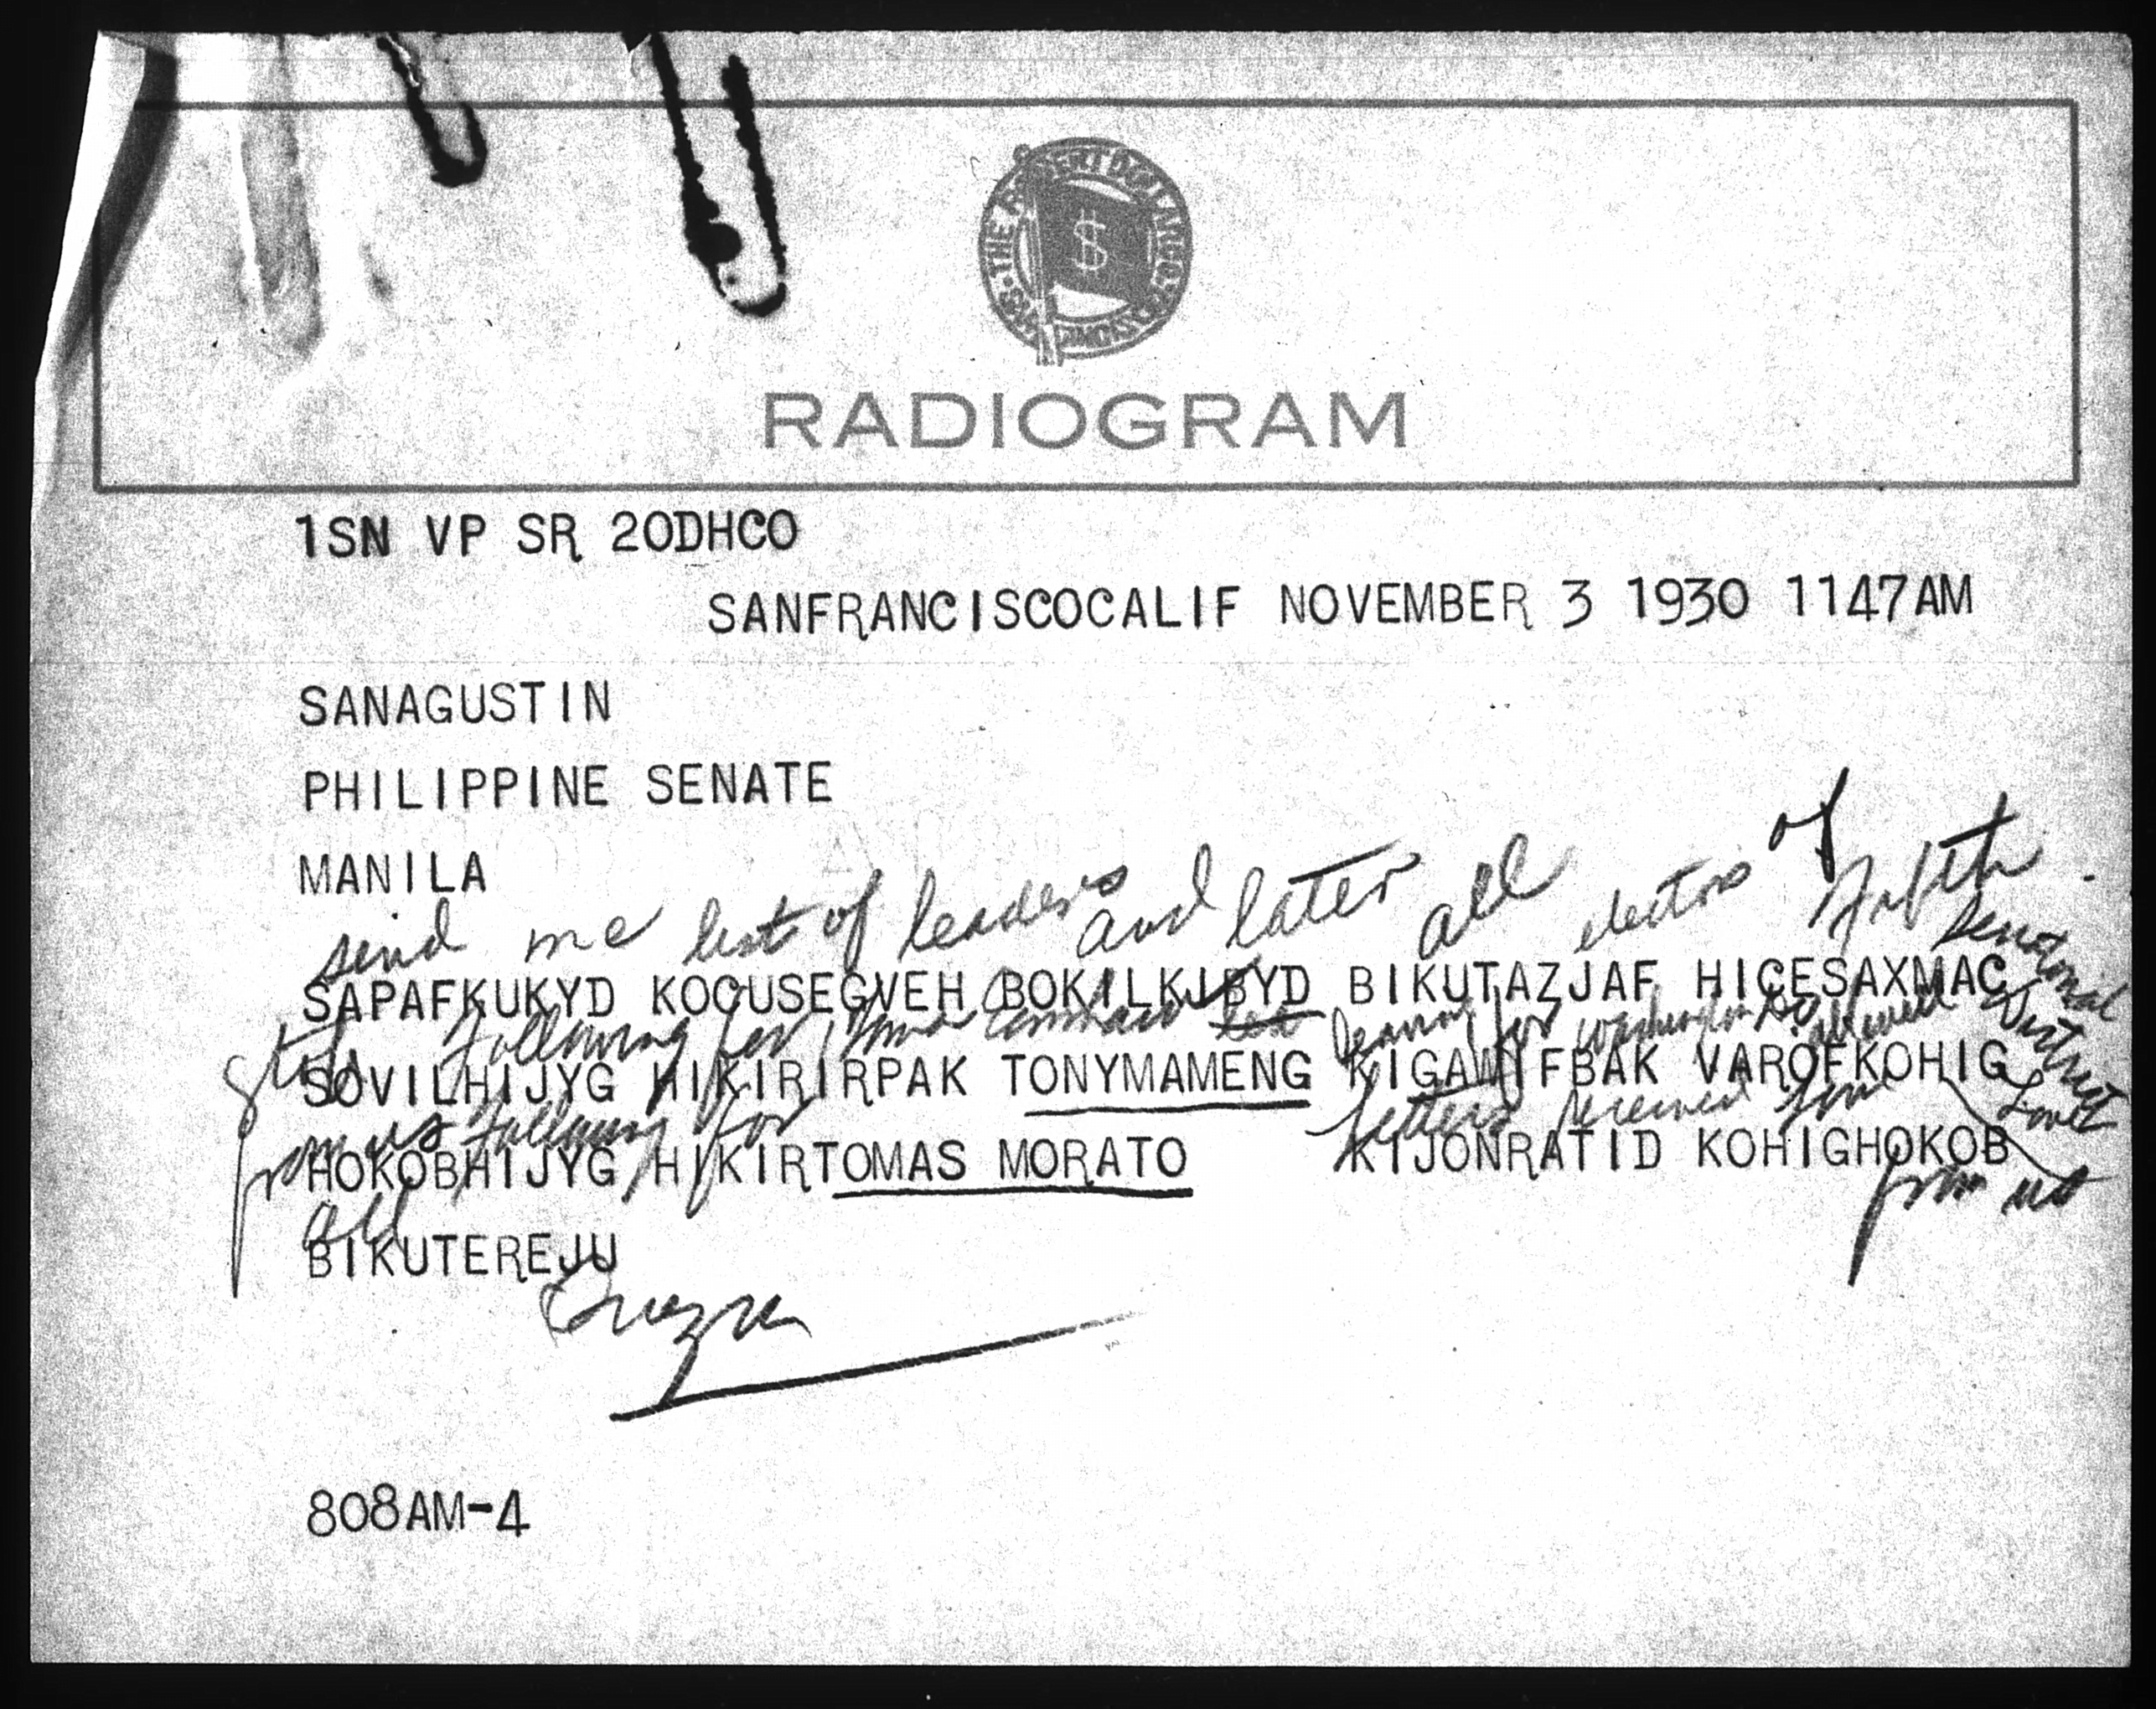 THE ROBERT DOLLAR CO.
SAN FRANCISCO
$
RADIOGRAM
1SN VP SR 20DHCO
SANFRANCISCOCALIF NOVEMBER 3 1930 1147AM
SANAGUSTIN
PHILIPPINE SENATE
MANILA
send me list of leaders and later all electors of Fifth
Senatorial
SAPAFKUKYD KOCUSEGVEH BOKILKJBYD BIKUTAZJAF HICESAXMAC
District
stop following for leaving for Washington
SOVILHIJYG HIKIRIRPAK TONYMAMENG KIGAWIFBAK VAROFKOHIG
Love
from us following for letters received
HOKOBHIJYG HIKIRTOMAS MORATO KIJONRATID KOHIGHOKOB
from us
all
BIKUTEREJU
Quezon
808AM-4